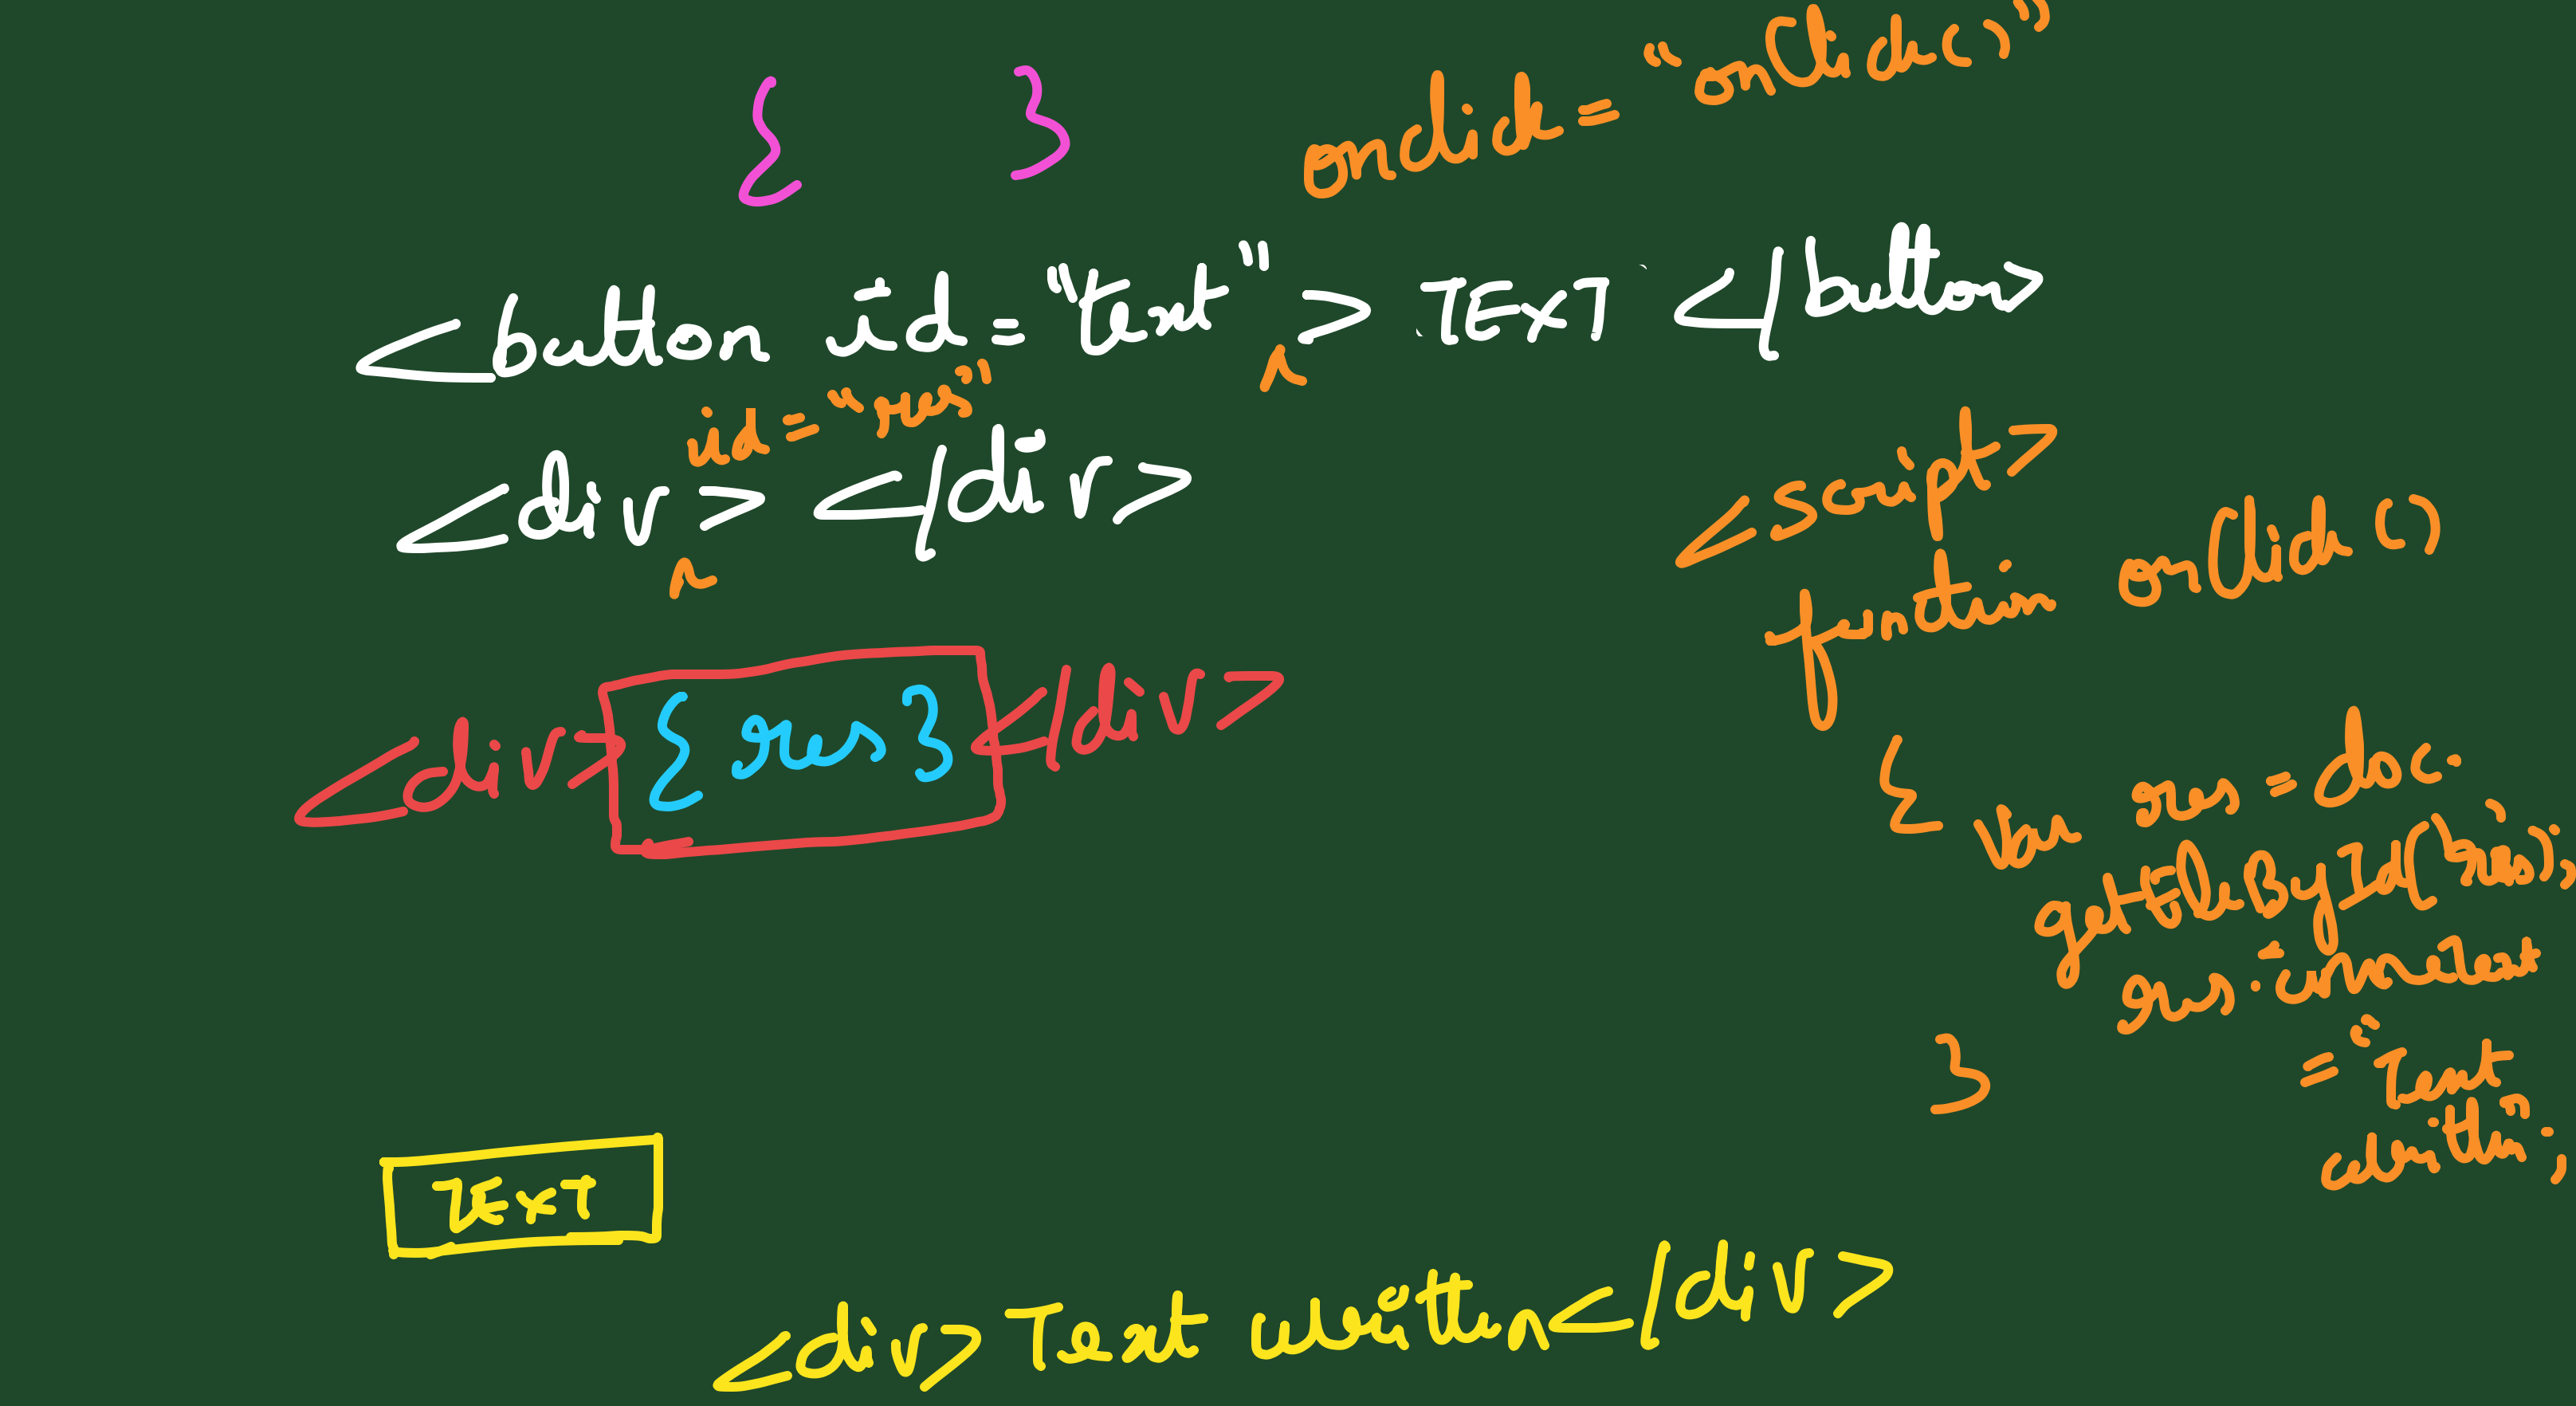 { }
onclick = "onClick()"
<button id="text"> TEXT </button>
id="res"
<div> </div>
<script>
function onClick()
<div>{res}</div>
{ var res = doc.
getEleById('res');
res.innerText
= "Text
written";
}
TEXT
<div>Text written</div>